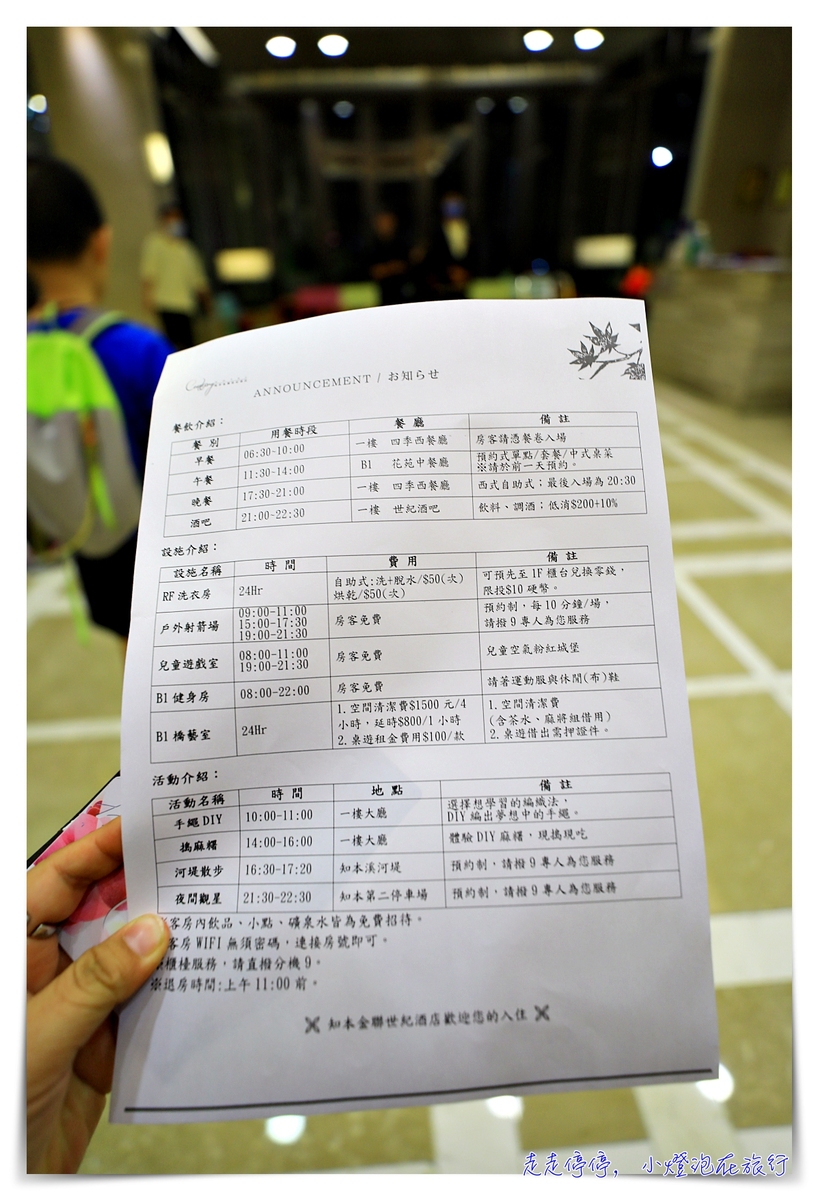 ANNOUNCEMENT / お知らせ
餐飲介紹：
餐 別 用餐時段 餐 廳 備 註
早餐 06:30~10:00 一樓 四季西餐廳 房客請憑餐卷入場
午餐 11:30~14:00 B1 花苑中餐廳 預約式單點/套餐/中式桌菜
※請於前一天預約。
晚餐 17:30-21:00 一樓 四季西餐廳 西式自助式；最後入場為 20:30
酒吧 21:00~22:30 一樓 世紀酒吧 飲料、調酒；低消$200+10%
設施介紹：
設施名稱 時 間 費 用 備 註
RF 洗衣房 24Hr 自助式:洗+脫水/$50(次)
烘乾/$50(次) 可預先至 1F 櫃台兌換零錢，
限投$10 硬幣。
戶外射箭場 09:00-11:00
15:00-17:30
19:00-21:30 房客免費 預約制，每 10 分鐘/場，
請撥 9 專人為您服務
兒童遊戲室 08:00-11:00
19:00-21:30 房客免費 兒童空氣粉紅城堡
B1 健身房 08:00-22:00 房客免費 請著運動服與休閒(布)鞋
B1 橋藝室 24Hr 1. 空間清潔費$1500 元/4
小時，延時$800/1 小時
2. 桌遊租金費用$100/款 1. 空間清潔費
(含茶水、麻將組借用)
2. 桌遊借出需押證件。
活動介紹：
活動名稱 時 間 地 點 備 註
手繩 DIY 10:00-11:00 一樓大廳 選擇想學習的編織法，
DIY 編出夢想中的手繩。
搗麻糬 14:00-16:00 一樓大廳 體驗 DIY 麻糬，現搗現吃
河堤散步 16:30-17:20 知本溪河堤 預約制，請撥 9 專人為您服務
夜間觀星 21:30-22:30 知本第二停車場 預約制，請撥 9 專人為您服務
※客房內飲品、小點、礦泉水皆為免費招待。
客房 WIFI 無須密碼，連接房號即可。
※櫃檯服務，請直撥分機 9。
※退房時間:上午 11:00 前。
知本金聯世紀酒店歡迎您的入住
走走停停，小燈泡在旅行